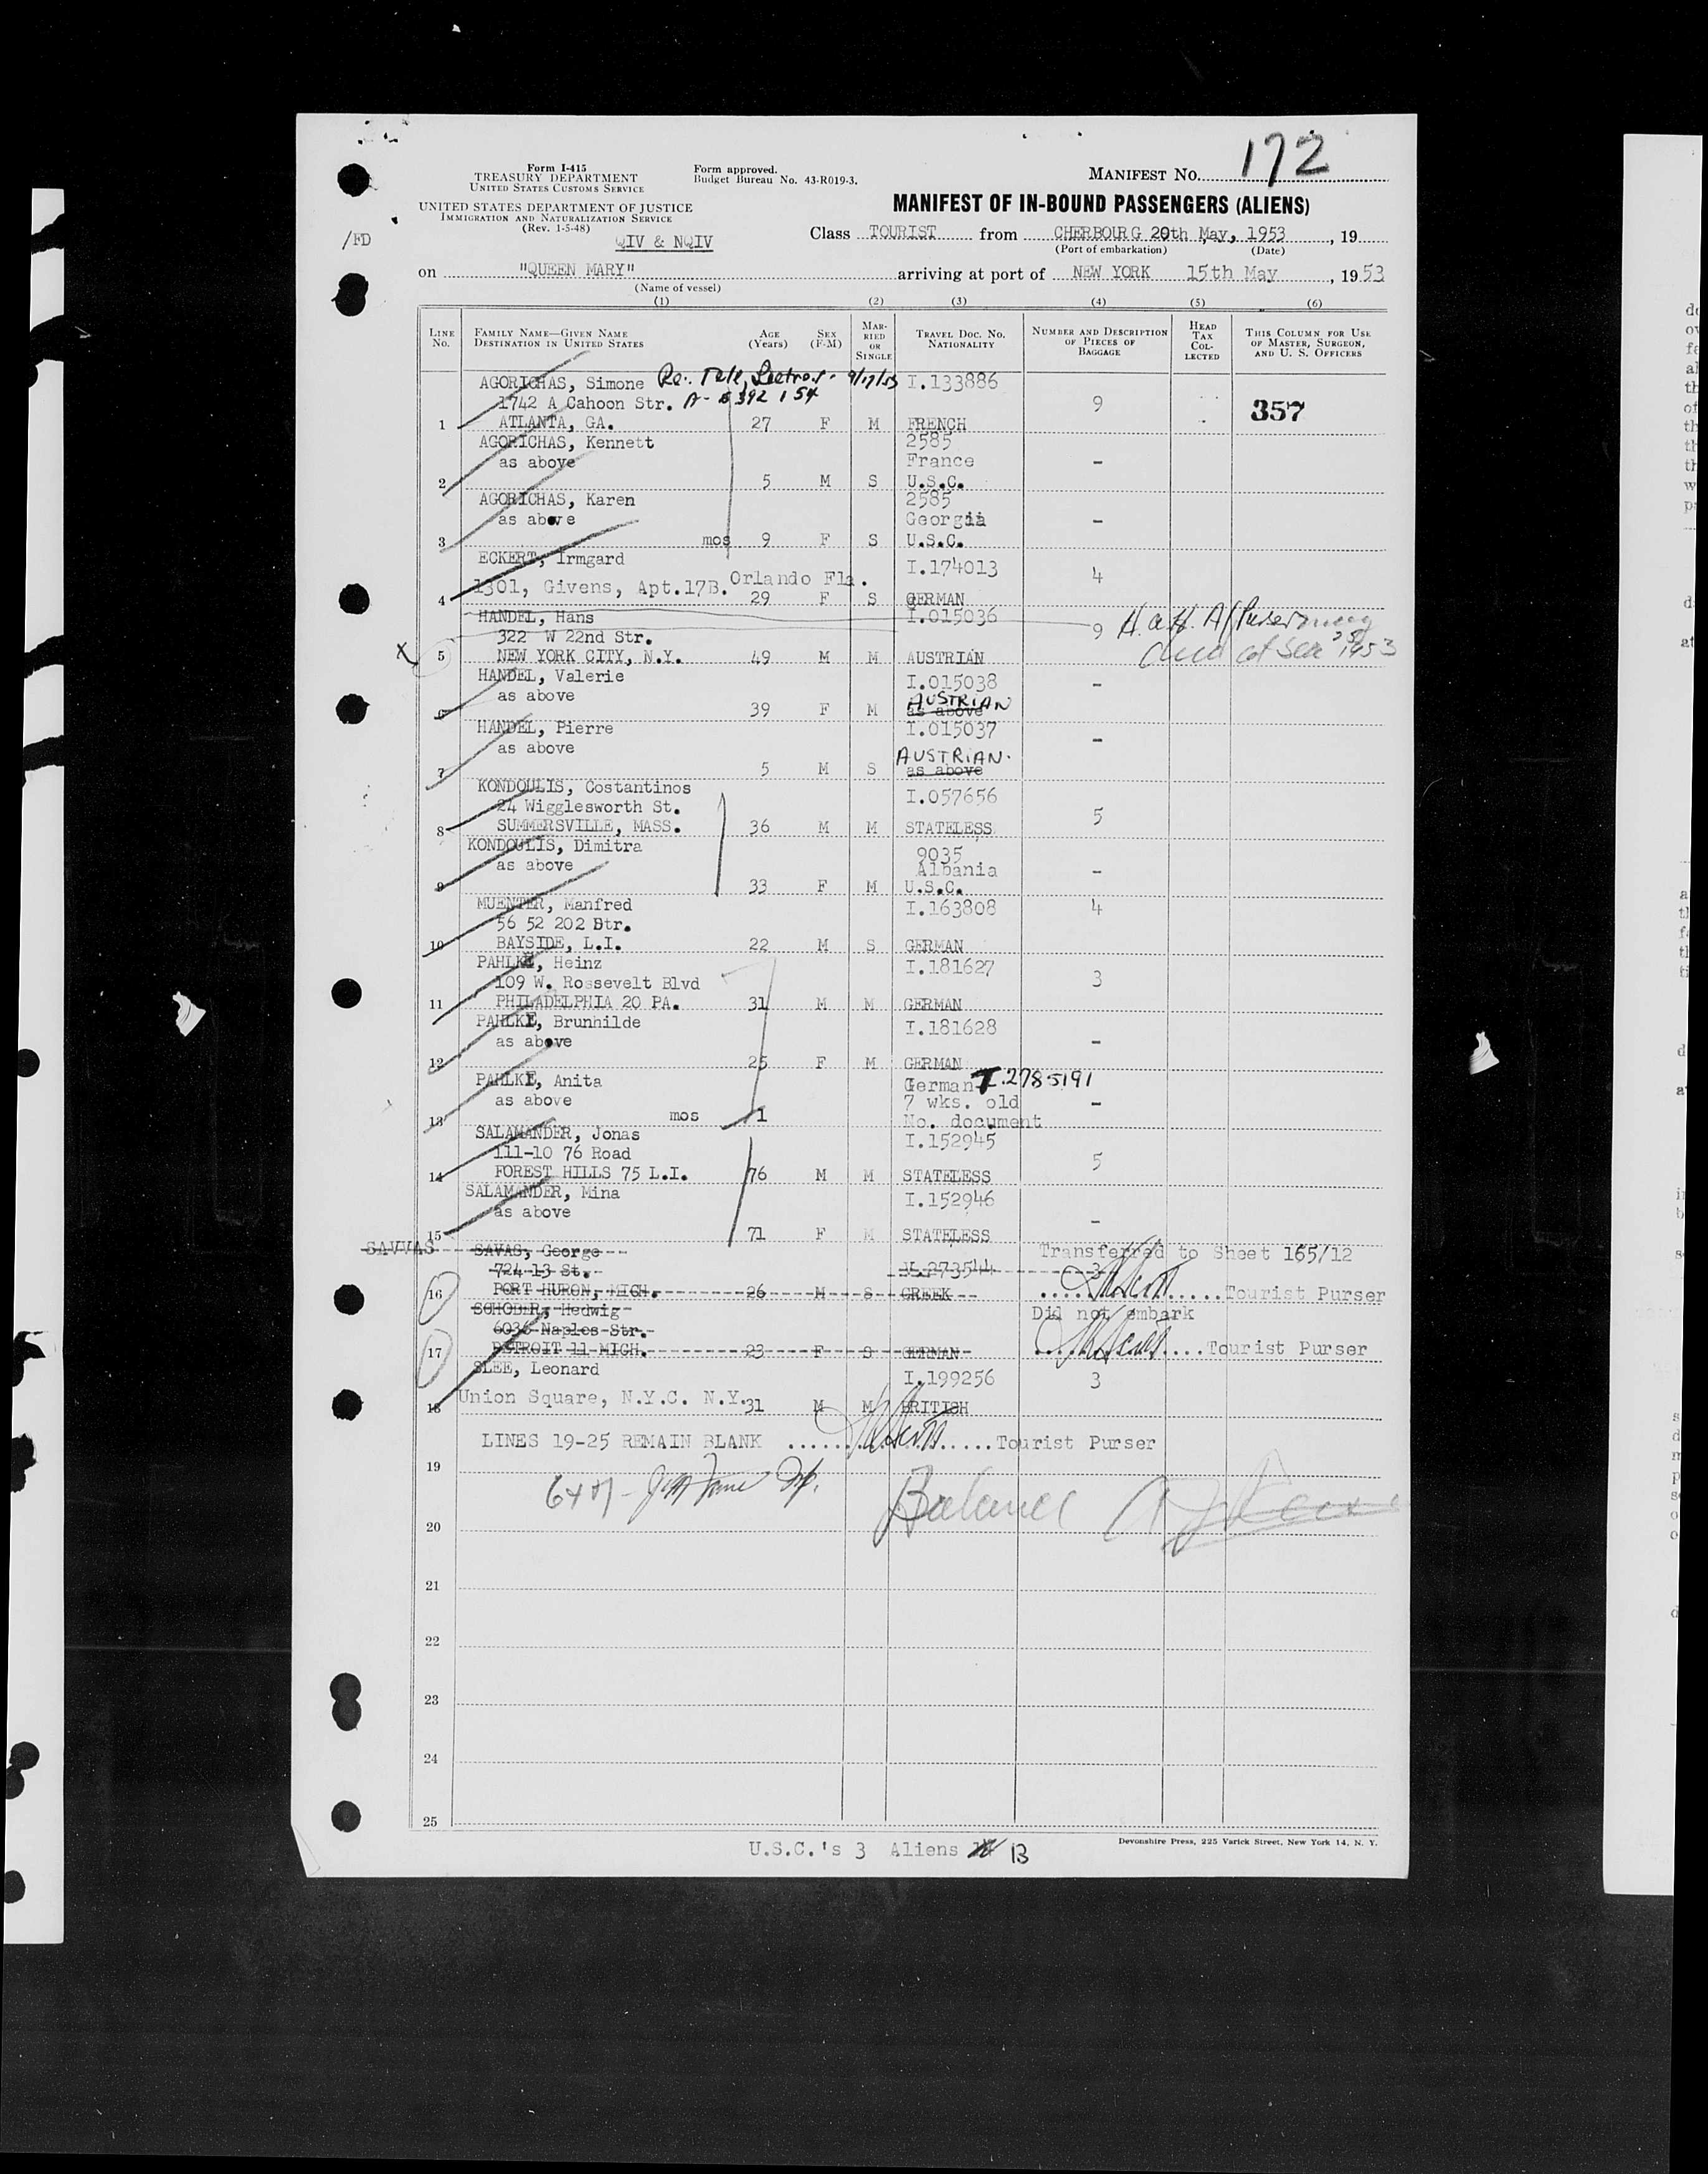 Form I-415
TREASURY DEPARTMENT
UNITED STATES CUSTOMS SERVICE
Form approved.
Budget Bureau No. 43-R019-3.
MANIFEST NO. 172
UNITED STATES DEPARTMENT OF JUSTICE
IMMIGRATION AND NATURALIZATION SERVICE
(Rev. 1-5-48)
MANIFEST OF IN-BOUND PASSENGERS (ALIENS)
/FD
QIV & NQIV
Class TOURIST from CHERBOURG 20th May, 1953, 19
(Port of embarkation) (Date)
on "QUEEN MARY" arriving at port of NEW YORK 15th May, 1953
(Name of vessel)
(1) (2) (3) (4) (5) (6)
LINE No.
FAMILY NAME—GIVEN NAME
DESTINATION IN UNITED STATES
AGE (Years)
SEX (F-M)
MARRIED OR SINGLE
TRAVEL DOC. NO.
NATIONALITY
NUMBER AND DESCRIPTION OF PIECES OF BAGGAGE
HEAD TAX COLLECTED
THIS COLUMN FOR USE OF MASTER, SURGEON, AND U. S. OFFICERS
AGORICHAS, Simone Re: 9/17/53 I.133886
1742 A Cahoon Str. 9 357
1 ATLANTA, GA. 27 F M FRENCH
AGORICHAS, Kennett 2585
as above France -
2 5 M S U.S.C.
AGORICHAS, Karen 2585
as above Georgia -
3 mos 9 F S U.S.C.
ECKERT, Irmgard I.174013
1301, Givens, Apt.17B. Orlando Fla. 4
4 29 F S GERMAN
HANDEL, Hans I.015036
322 W 22nd Str. 9
5 NEW YORK CITY, N.Y. 49 M M AUSTRIAN at sea 1953
HANDEL, Valerie I.015038
as above AUSTRIAN -
6 39 F M as above
HANDEL, Pierre I.015037
as above AUSTRIAN. -
7 5 M S as above
KONDOULIS, Costantinos I.057656
24 Wigglesworth St. 5
8 SUMMERSVILLE, MASS. 36 M M STATELESS
KONDOULIS, Dimitra 9035
as above Albania -
9 33 F M U.S.C.
MUENTER, Manfred I.163808 4
56 52 202 Str.
10 BAYSIDE, L.I. 22 M S GERMAN
PAHLKE, Heinz I.181627
109 W. Rossevelt Blvd 3
11 PHILADELPHIA 20 PA. 31 M M GERMAN
PAHLKE, Brunhilde I.181628
as above -
12 25 F M GERMAN
PAHLKE, Anita German I.2785191
as above 7 wks. old -
13 mos 1 No. document
SALAMANDER, Jonas I.152945
111-10 76 Road 5
14 FOREST HILLS 75 L.I. 76 M M STATELESS
SALAMANDER, Mina I.152946
as above -
15 71 F M STATELESS
SAVVAS SAVAS, George Transferred to Sheet 165/12
724 13 St. 273544 3
16 PORT HURON, MICH. 26 M S GREEK Tourist Purser
SCHODER, Hedwig Did not embark
6036 Naples Str.
17 DETROIT 11 MICH. 23 F S GERMAN Tourist Purser
SLEE, Leonard I.199256 3
18 Union Square, N.Y.C. N.Y. 31 M M BRITISH
LINES 19-25 REMAIN BLANK Tourist Purser
19
Balance
20
21
22
23
24
25
U.S.C.'s 3 Aliens 13
Devonshire Press, 225 Varick Street, New York 14, N. Y.